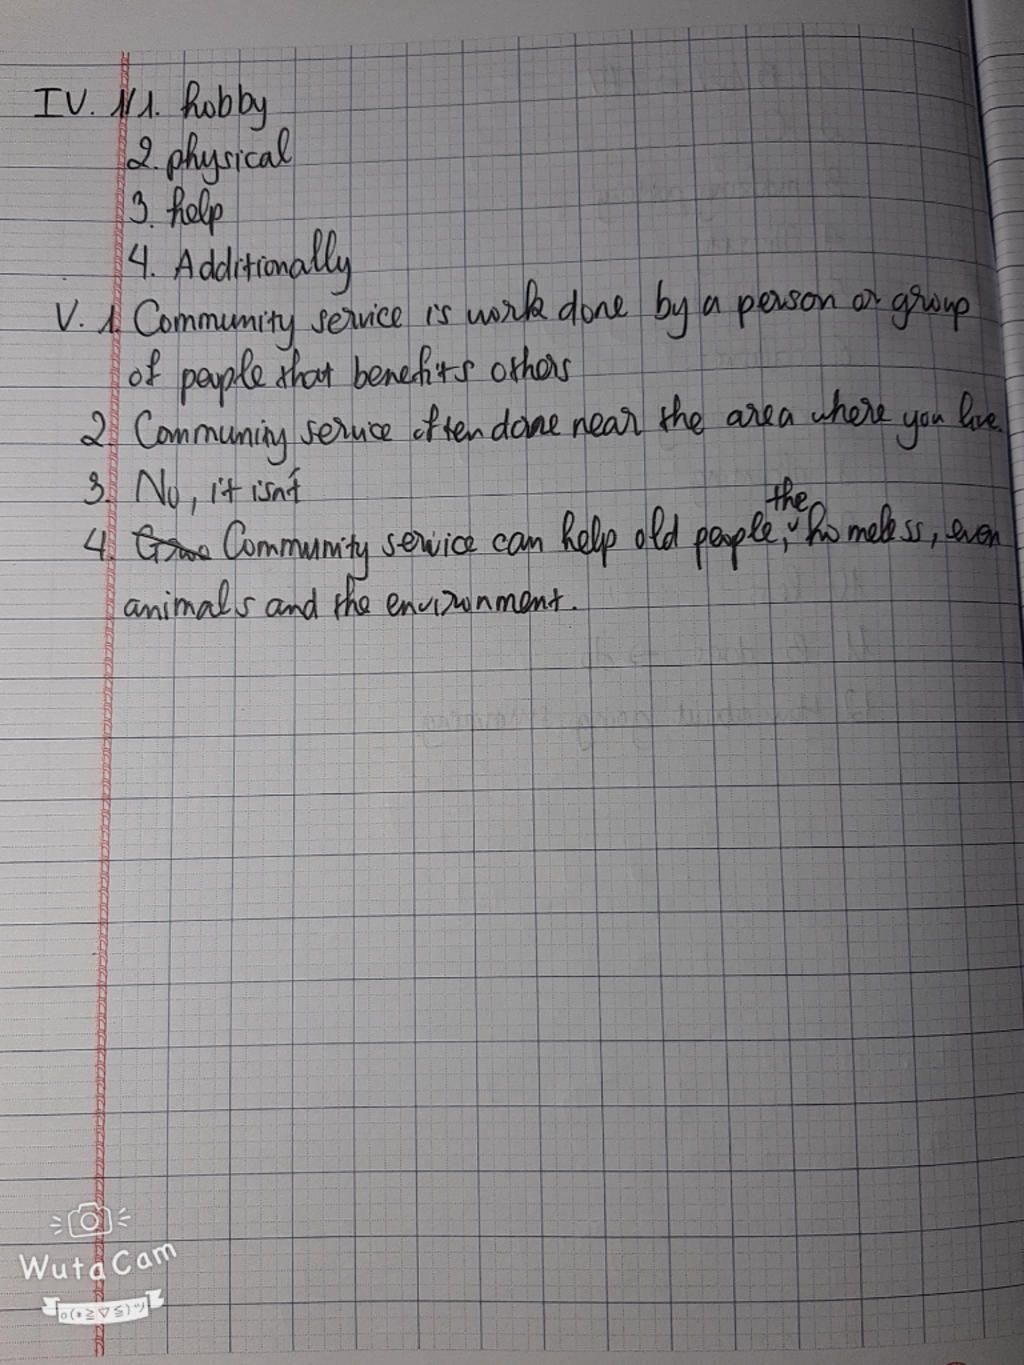 IV. 1. hobby
2. physical
3. help
4. Additionally
V. 1. Community service is work done by a person or group
of people that benefits others
2. Community service often done near the area where you live.
3. No, it isn't
4. Community service can help old people, the homeless, even
animals and the environment.
WutaCam